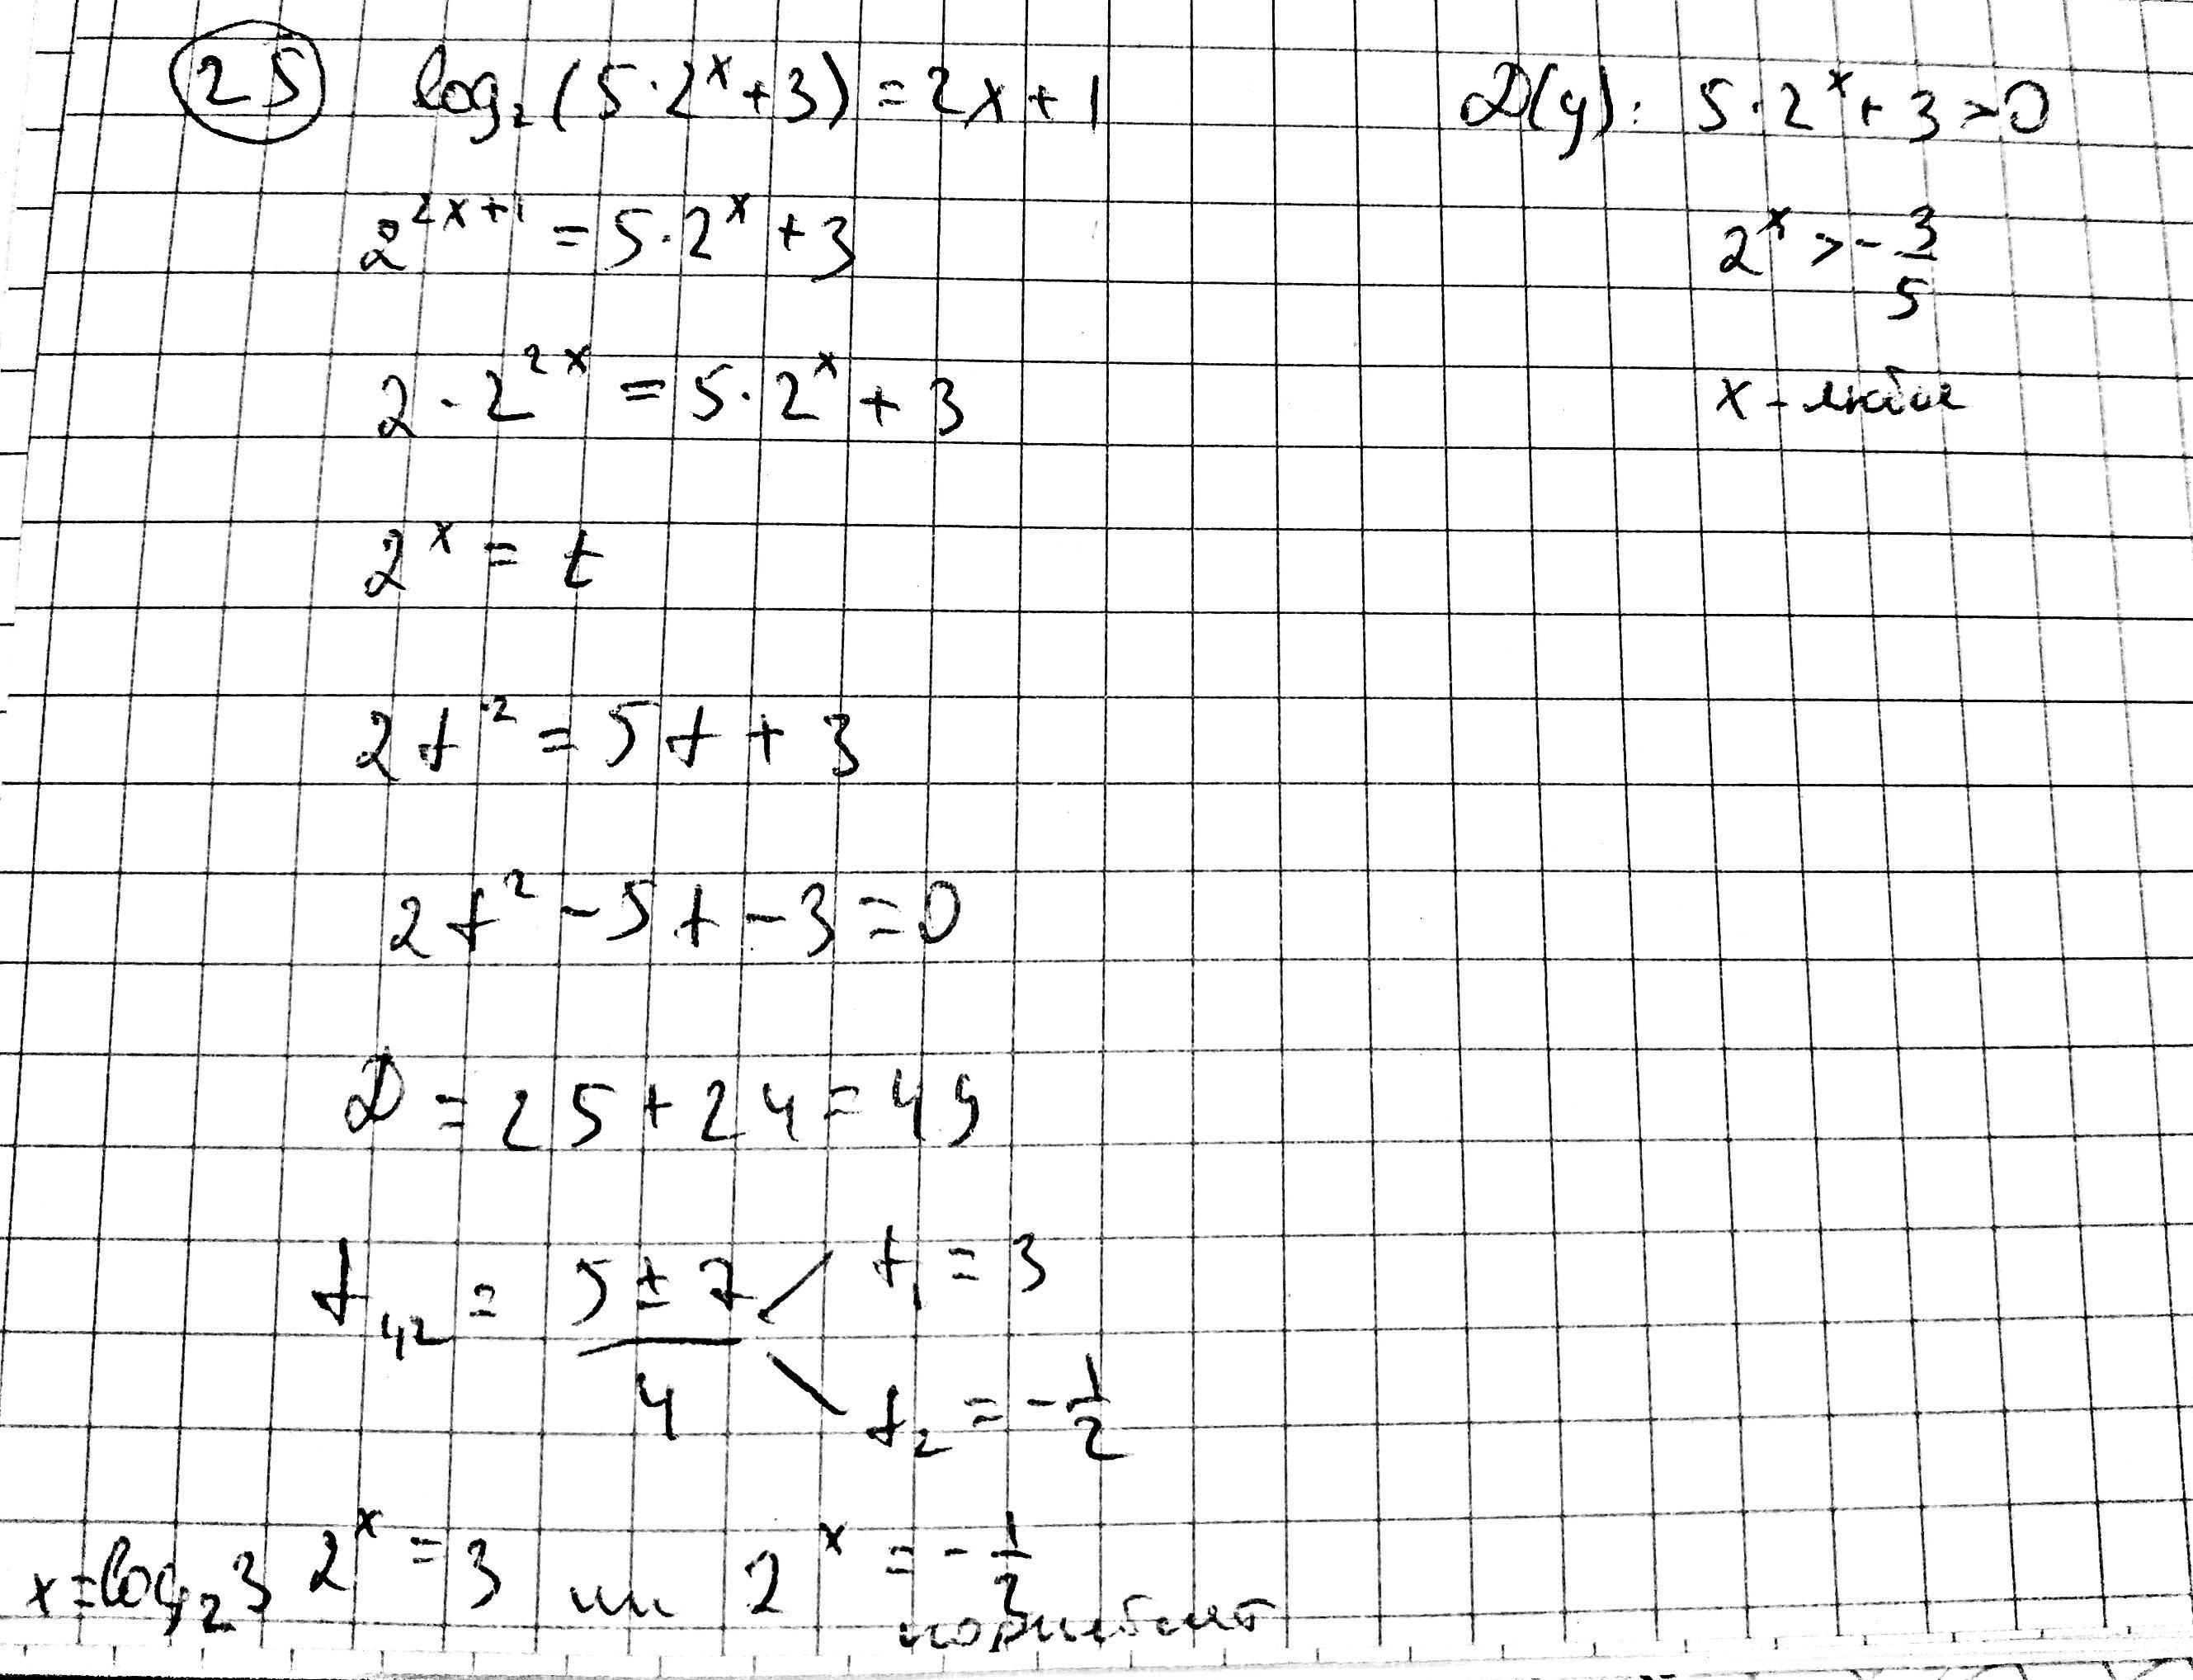 25 log₂(5·2ˣ+3)=2x+1 D(y): 5·2ˣ+3>0
2²ˣ⁺¹=5·2ˣ+3 2ˣ>-3/5
2·2²ˣ=5·2ˣ+3 x-любое
2ˣ=t
2t²=5t+3
2t²-5t-3=0
D=25+24=49
t₁,₂=(5±7)/4 t₁=3
t₂=-1/2
x=log₂3 2ˣ=3 или 2ˣ=-1/2